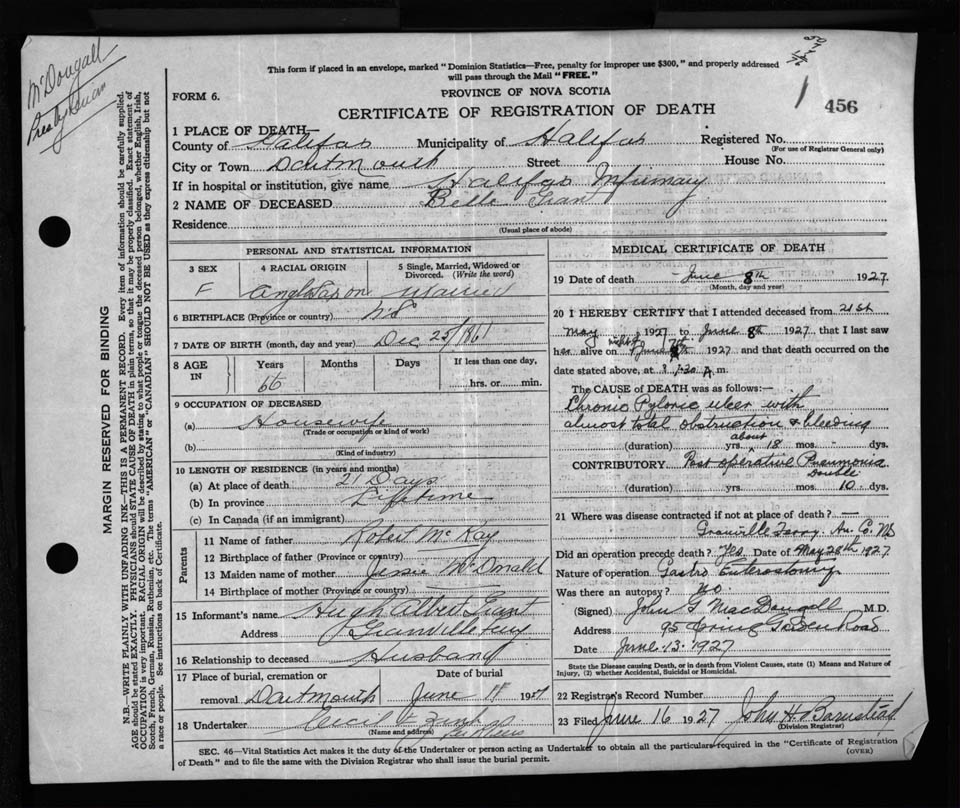 McDougall
Presbyterian
This form if placed in an envelope, marked "Dominion Statistics—Free, penalty for improper use $300," and properly addressed
will pass through the Mail "FREE."
FORM 6.
PROVINCE OF NOVA SCOTIA
CERTIFICATE OF REGISTRATION OF DEATH
1 456
1 PLACE OF DEATH—
County of Halifax Municipality of Halifax Registered No.
(For use of Registrar General only)
City or Town Dartmouth Street House No.
If in hospital or institution, give name Halifax Infirmary
2 NAME OF DECEASED Belle Grant
Residence
(Usual place of abode)
PERSONAL AND STATISTICAL INFORMATION
3 SEX 4 RACIAL ORIGIN 5 Single, Married, Widowed or
Divorced. (Write the word)
F Anglo Saxon Married
6 BIRTHPLACE (Province or country) N.S.
7 DATE OF BIRTH (month, day and year) Dec 25/1861
8 AGE IN Years Months Days If less than one day,
66 hrs. or min.
9 OCCUPATION OF DECEASED
(a) Housewife
(Trade or occupation or kind of work)
(b)
(Kind of industry)
10 LENGTH OF RESIDENCE (in years and months)
(a) At place of death 21 Days
(b) In province Lifetime
(c) In Canada (if an immigrant)
Parents
11 Name of father Robert McKay
12 Birthplace of father (Province or country)
13 Maiden name of mother Jessie McDonald
14 Birthplace of mother (Province or country)
15 Informant's name Hugh Albert Grant
Address Granville Ferry
16 Relationship to deceased Husband
17 Place of burial, cremation or Date of burial
removal Dartmouth June 11 1927
18 Undertaker Cecil E Zink
(Name and address)
MEDICAL CERTIFICATE OF DEATH
19 Date of death June 8th 1927
(Month, day and year)
20 I HEREBY CERTIFY that I attended deceased from 21st
May 1927 to June 8th 1927 that I last saw
her alive on June 7th 1927 and that death occurred on the
date stated above, at 1.30 A m.
The CAUSE of DEATH was as follows:—
Chronic Pyloric ulcer with
almost total obstruction & bleeding
(duration) yrs. about 18 mos. - dys.
CONTRIBUTORY Post operative Pneumonia
Double
(duration) yrs. mos. 10 dys.
21 Where was disease contracted if not at place of death? —
Granville Ferry. An. Co. NS
Did an operation precede death? Yes. Date of May 28th 1927
Nature of operation Gastro Enterostomy
Was there an autopsy? No.
(Signed) John G MacDougall M.D.
Address 95 Spring Garden Road
Date June 13 1927
State the Disease causing Death, or in death from Violent Causes, state (1) Means and Nature of
Injury, (2) whether Accidental, Suicidal or Homicidal.
22 Registrar's Record Number
23 Filed June 16 1927 John H. Barnstead
(Division Registrar)
SEC. 46—Vital Statistics Act makes it the duty of the Undertaker or person acting as Undertaker to obtain all the particulars required in the "Certificate of Registration
of Death" and to file the same with the Division Registrar who shall issue the burial permit.
(OVER)
MARGIN RESERVED FOR BINDING
N.B.—WRITE PLAINLY WITH UNFADING INK—THIS IS A PERMANENT RECORD. Every item of information should be carefully supplied.
AGE should be stated EXACTLY. PHYSICIANS should STATE CAUSE OF DEATH in plain terms, so that it may be properly classified. Exact statement of
OCCUPATION is very important. RACIAL ORIGIN will be described by stating to what people or tongue the deceased person belonged, whether English, Irish,
Scotch, French, German, Russian, Ruthenian, etc. The terms "AMERICAN" or "CANADIAN" SHOULD NOT BE USED as they express citizenship but not
a race or people. See instructions on back of Certificate.